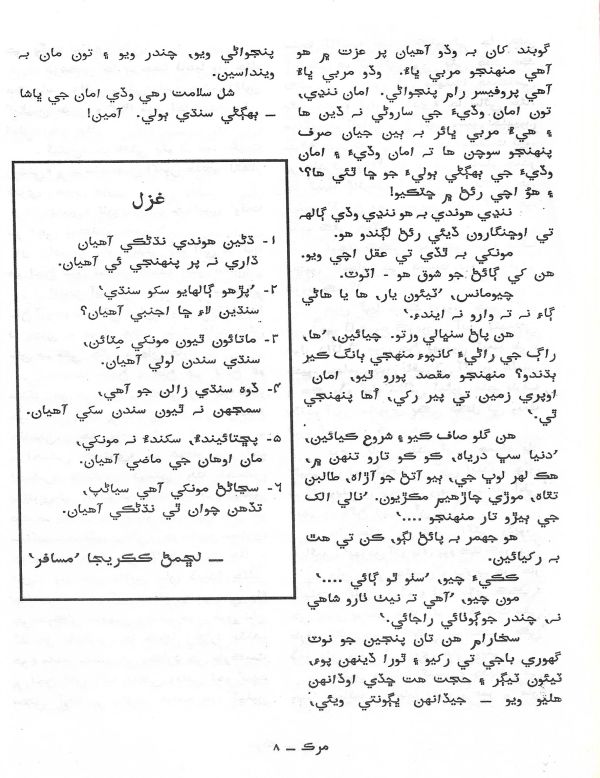 گوبند کان به وڏو آهيان پر عزت ۾ هو
آهي منهنجو مربي ڀاءُ. وڏو مربي ڀاءُ
آهي پروفيسر رام پنجواڻي. امان ننڍي،
تون امان وڏيءَ جي ساروڻي نه ڏين ها
۽ هيءُ مربي ڀائر به ٻين جيان صرف
پنهنجو سوچن ها ته امان وڏيءَ ۽ امان
وڏيءَ جي ٻهڳڻي ٻوليءَ جو ڇا ٿئي ها؟‘
۽ هوُ اچي رئڻ ۾ ڇٽڪيو!
ننڍي هوندي به هو ننڍي وڏي ڳالهہ
تي اوڇنگارون ڏيئي رئڻ لڳندو هو.
مونکي به ٿڏي تي عقل اچي ويو.
هن کي ڳائڻ جو شوق هو - اٿوٽ.
چيومانس، ’ٽيئون يار، ها يا هاڻي
ڳاءِ نه ته وارو نه ايندءِ.‘
هن پاڻ سنڀالي ورتو. چيائين، ’ها،
راڳ جي راڻيءَ کانپوءِ منهنجي ٻانگ ڪير
ٻڌندو؟ منهنجو مقصد پورو ٿيو، امان
اوپري زمين تي پير رکي، آها پنهنجي
ٿي.‘
هن گلو صاف ڪيو ۽ شروع ڪيائين،
’دنيا سڀ درياءَ، ڪو ڪو تارو تنهن ۾،
هڪ لهر لوڀ جي، ٻيو آتڻ جو آڙاهہ، طالبن
تڳاهہ، موڙي چاڙهيم مڪڙيون. ’نالي الک
جي ٻيڙو تار منهنجو ....‘
هو جهمر به پائڻ لڳو، ڪن تي هٿ
به رکيائين.
ڪڪيءَ چيو، ’سٺو ٿو ڳائي ....‘
مون چيو، ’آهي ته نيٺ ٺارو شاهي
نه، چندر جوڳوٺائي راڄائي.‘
سخارام هن تان پنجين جو نوٽ
گهوري باجي تي رکيو ۽ ٿورا ڏينهن پوءِ،
ٽيئون ٽيگر ۽ حجت هت ڇڏي اوڏانهن
هليو ويو ــ جيڏانهن ڀڳونتي ويئي،
پنجواڻي ويو، چندر ويو ۽ تون مان به
وينداسين.
شل سلامت رهي وڏي امان جي ڀاشا
ــ ٻهڳڻي سنڌي ٻولي. آمين!
غزل
۱- ڌڻين هوندي نڌڻڪي آهيان
ڌاري نه پر پنهنجي ئي آهيان.
۲- ’پڙهو ڳالهايو سکو سنڌي‘
سنڌين لاءِ ڇا اجنبي آهيان؟
۳- ماتائون ٿيون مونکي مِٽائن،
سنڌي سندن لولي آهيان.
۴- ڏوهہ سنڌي زالن جو آهي،
سمجهن نه ٿيون سندن سکي آهيان.
۵- پڇتائيندءُ، سکندءُ نه مونکي،
مان اوهان جي ماضي آهيان.
۶- سڃاڻڻ مونکي آهي سياڻپ،
تڏهن چوان ٿي نڌڻڪي آهيان.
ــ لڇمڻ ڪڪريجا ’مسافر‘
مرڪ ــ ۸